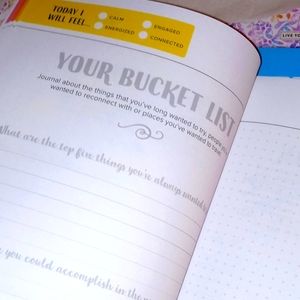 TODAY I
WILL FEEL...
CALM
ENGAGED
ENERGIZED
CONNECTED
LIVE
YOUR BUCKET LIST
Journal about the things that you've long wanted to try, people you've
wanted to reconnect with or places you've wanted to travel.
What are the top five things you've always wanted
you could accomplish in the